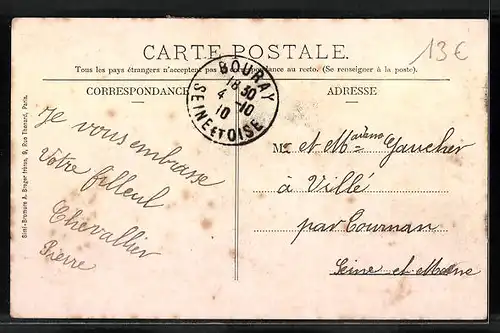 CARTE POSTALE.
Tous les pays étrangers n'acceptent pas la correspondance au recto. (Se renseigner à la poste).
CORRESPONDANCE
ADRESSE
13€
BOURAY
18 30
4 -10
10
SEINE ET OISE
Je vous embrasse
Votre filleul
Chevallier
Pierre
Mr et Madame Gaucher
à Villé
par Cournan
Seine et Marne
Simi-Bromure A. Breger frères, 9, Rue Thénard, Paris.